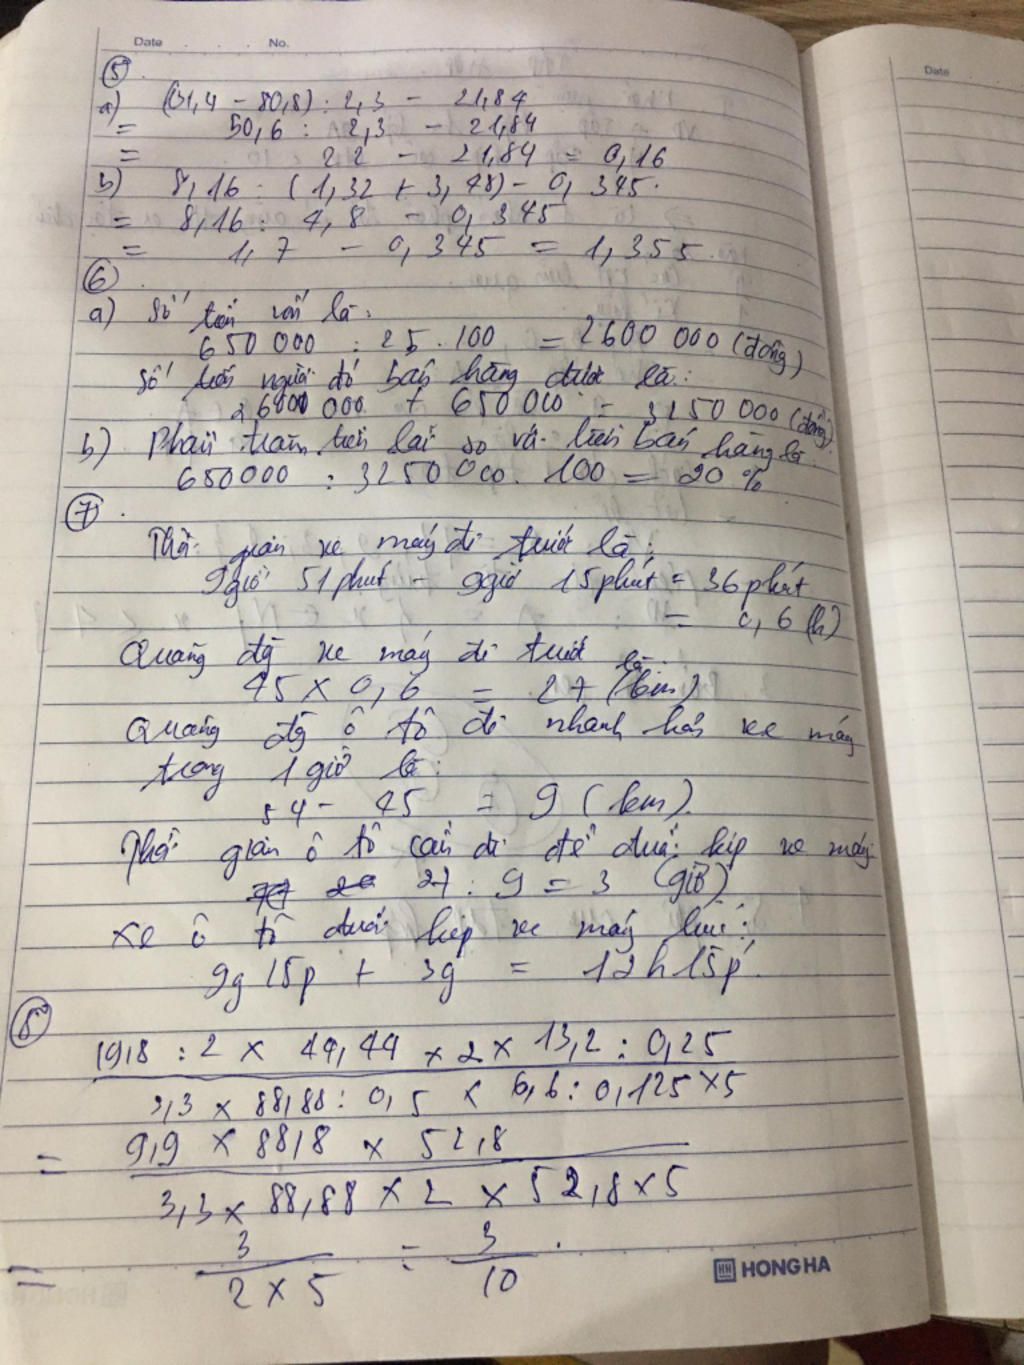 Date No.
Date
5
a) (131,4 - 80,8) : 2,3 - 21,84
= 50,6 : 2,3 - 21,84
= 22 - 21,84 = 0,16
b) 8,16 : (1,32 + 3,48) - 0,345.
= 8,16 : 4,8 - 0,345
= 1,7 - 0,345 = 1,355.
6
a) Số tiền vốn là:
650 000 : 25 . 100 = 2600 000 (đồng)
Số tiền người đó bán hàng được là:
2600 000 + 650 000 = 3250 000 (đồng)
b) Phần trăm tiền lãi so với tiền bán hàng là
650000 : 3250000. 100 = 20 %
7.
Thời gian xe máy đi trước là:
9giờ 51phút - 9giờ 15phút = 36phút
= 0,6 (h)
Quãng đg xe máy đi trước là.
45 x 0,6 = 27 (km)
Quãng đg ô tô đi nhanh hơn xe máy
trong 1 giờ là:
54 - 45 = 9 (km).
Thời gian ô tô cần đi để đuổi kịp xe máy:
27 : 9 = 3 (giờ)
Xe ô tô đuổi kịp xe máy lúc:
9g 15p + 3g = 12h15p.
8
19,8 : 2 x 44,44 x 2 x 13,2 : 0,25
3,3 x 88,88 : 0,5 x 6,6 : 0,125 x 5
= 9,9 x 88,8 x 52,8
3,3 x 88,88 x 2 x 52,8 x 5
= 3 = 3.
2 x 5 10
HH HONG HA